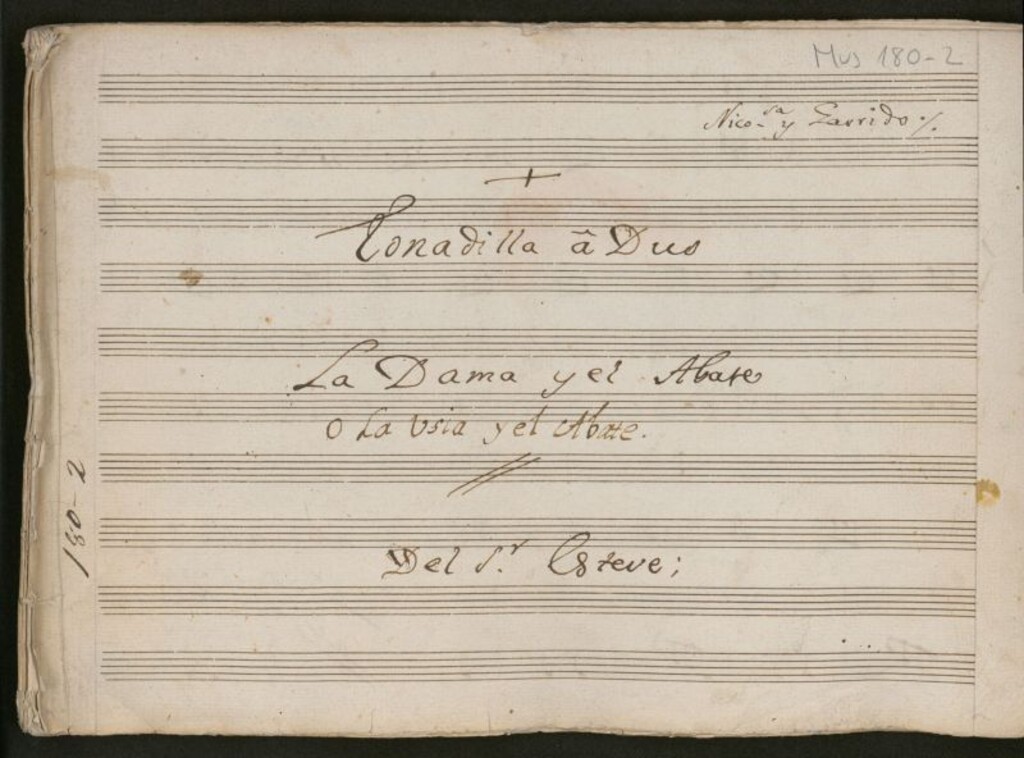 Mus 180-2
Nico.sa y Garrido ·/.
+
Tonadilla â Duo
La Dama y el Abate
O La Usia y el Abate.
Del S.r Esteve;
180-2